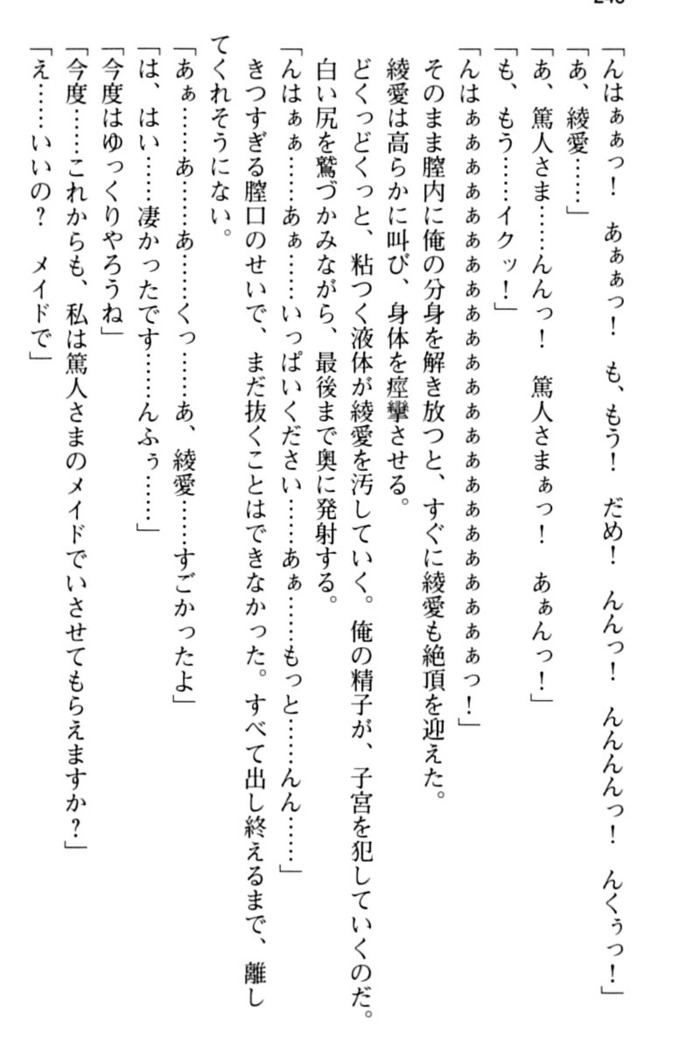 「んはぁぁっ！　あぁぁっ！　も、もう！　だめ！　んんっ！　んんんんっ！　んくぅっ！」
「あ、綾愛……」
「あ、篤人さま……んんっ！　篤人さまぁっ！　あぁんっ！」
「も、もう……イクッ！」
「んはぁぁぁぁぁぁぁぁぁぁぁぁぁぁぁぁぁぁぁぁぁぁぁっ！」
　そのまま膣内に俺の分身を解き放つと、すぐに綾愛も絶頂を迎えた。
　綾愛は高らかに叫び、身体を痙攣させる。
　どくっどくっと、粘つく液体が綾愛を汚していく。俺の精子が、子宮を犯していくのだ。
　白い尻を鷲づかみながら、最後まで奥に発射する。
「んはぁぁ……あぁ……いっぱいください……あぁ……もっと……んん……」
　きつすぎる膣口のせいで、まだ抜くことはできなかった。すべて出し終えるまで、離し
てくれそうにない。
「あぁ……あ……あ……くっ……あ、綾愛……すごかったよ」
「は、はい……凄かったです……んふぅ……」
「今度はゆっくりやろうね」
「今度……これからも、私は篤人さまのメイドでいさせてもらえますか？」
「え……いいの？　メイドで」